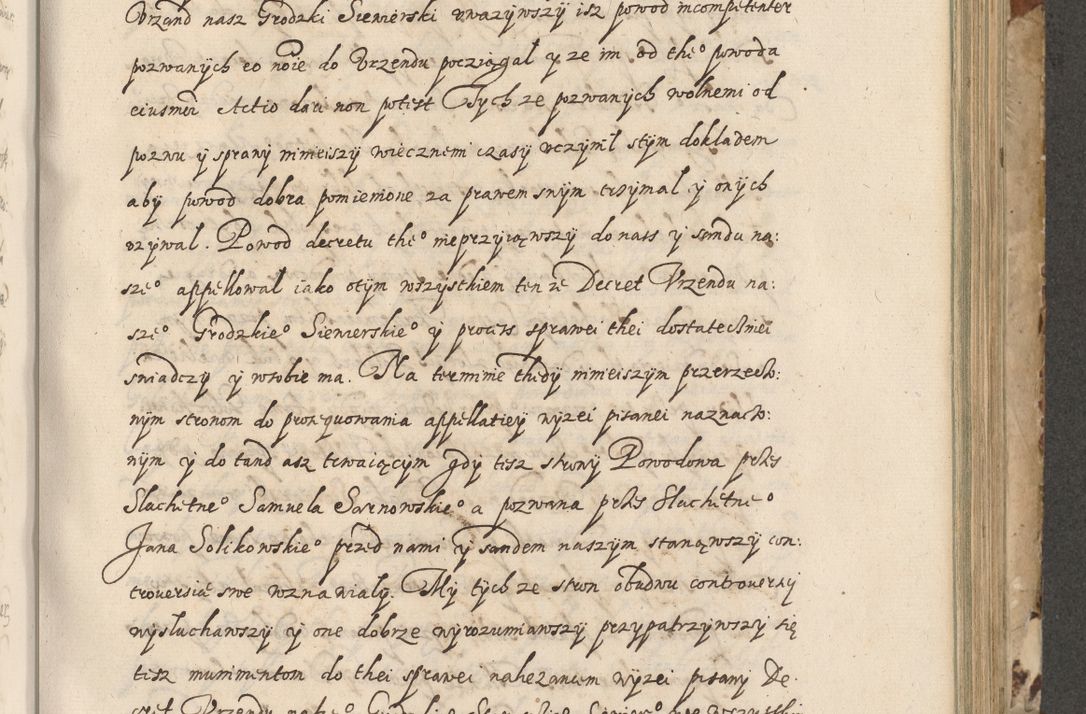 Vrzand nasz Grodzki Siewierski vwazywszy isz powod incompetenter
pozwanych eo noīe do Vrzendu pocziągał y ze im od the° powoda
eiusmoī Actio dari non potest Tych ze pozwanych wolnemi od
pozwu y sprawy ninieiszy wiecznemi czasy vczynil stym dokladem
aby powod dobra pomienione za prawem swym trzymal y onych
vzywal. Powod decretu the° nie przyiąwszy do nass y sandu na:
sze° appellował iako otym wszystkiem ten ze Decret Vrzendu na:
sze° Grodzkie° Siewierskie° y proces sprawei thei dostatecznei
swiadczy y wsobie ma. Na terminie thedy ninieiszym przerzeczo:
nym stronom do prosequowania appellatiey wyzei pisanei naznaczo:
nym y do tand asz trwaiącym Gdy tesz strony Powodowa przes
Slachetne° Samuela Sarnowskie° a pozwana przes Slachetne°
Jana Solikowskie° przed nami y sandem naszym stanąwszy con:
troversią swe wznawiały. My tych ze stron obudwu controversy
wysluchawszy y one dobrze wyrozumiawszy przypatrzywszy się
tesz munimentom do thei sprawei nalezancem wyzei pisany De:
cret Vrzendu nasze°